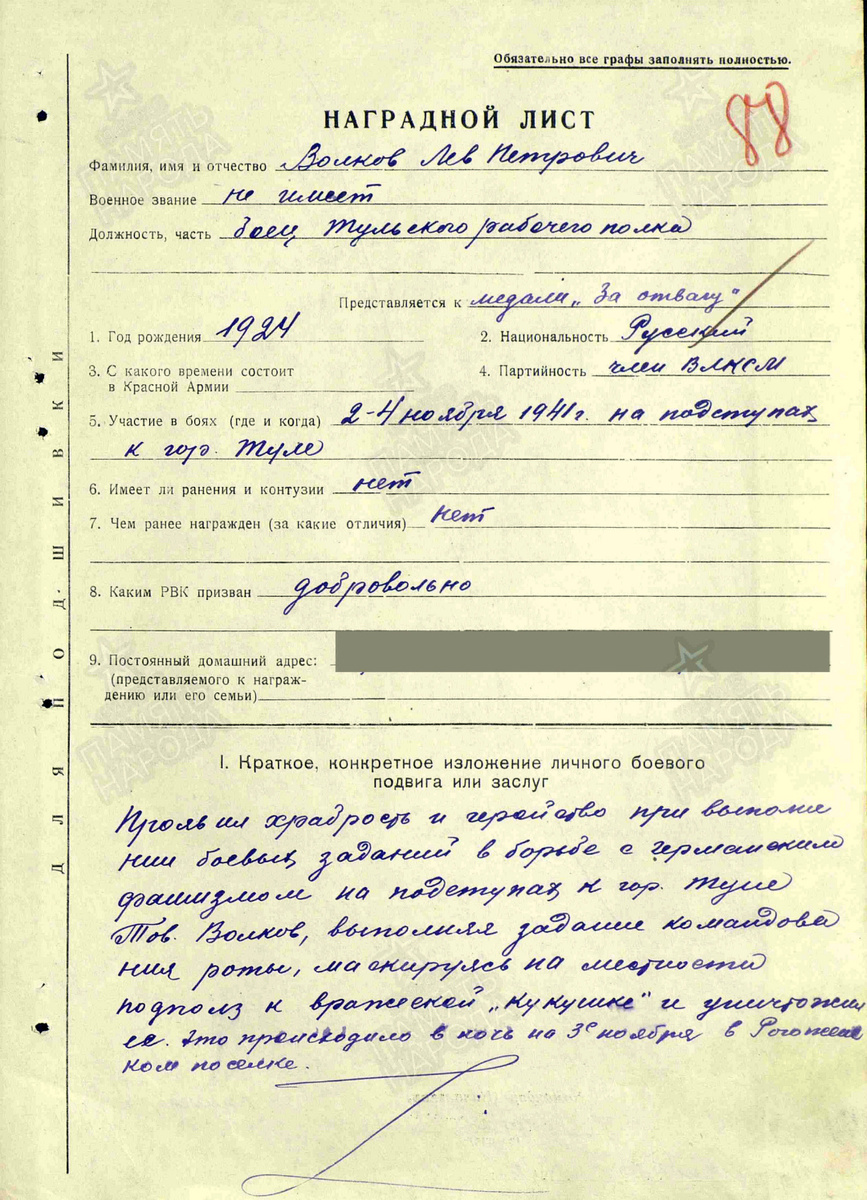 Обязательно все графы заполнять полностью.
88
НАГРАДНОЙ ЛИСТ
Фамилия, имя и отчество Волков Лев Петрович
Военное звание не имеет
Должность, часть боец Тульского рабочего полка
Представляется к медали „За отвагу"
1. Год рождения 1924 2. Национальность Русский
3. С какого времени состоит
в Красной Армии
4. Партийность член ВЛКСМ
5. Участие в боях (где и когда) 2-4 ноября 1941 г. на подступах
к гор. Туле
6. Имеет ли ранения и контузии нет
7. Чем ранее награжден (за какие отличия) нет
8. Каким РВК призван добровольно
9. Постоянный домашний адрес:
(представляемого к награж-
дению или его семьи)
I. Краткое, конкретное изложение личного боевого
подвига или заслуг
Проявил храбрость и геройство при выполне
нии боевых заданий в борьбе с германским
фашизмом на подступах к гор. Туле
Тов. Волков, выполняя задание командова
ния роты, маскируясь на местности
подполз к вражеской „кукушке" и уничтожил
ее. Это происходило в ночь на 3е ноября в Рогожен
ком поселке.
ДЛЯ ПОДШИВКИ
ПАМЯТЬ НАРОДА